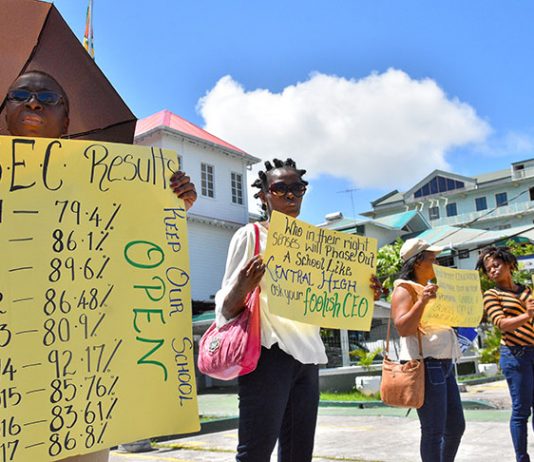 S.E.C Results
1 - 79.4%
- 86.1%
- 89.6%
- 86.48%
3 - 80.9%
14 - 92.17%
15 - 85.76%
16 - 83.61%
17 - 86.8%
KEEP OUR SCHOOL
OPEN
Who in their right
Senses will Phase Out
A School Like
CENTRAL HIGH
ask your foolish CEO